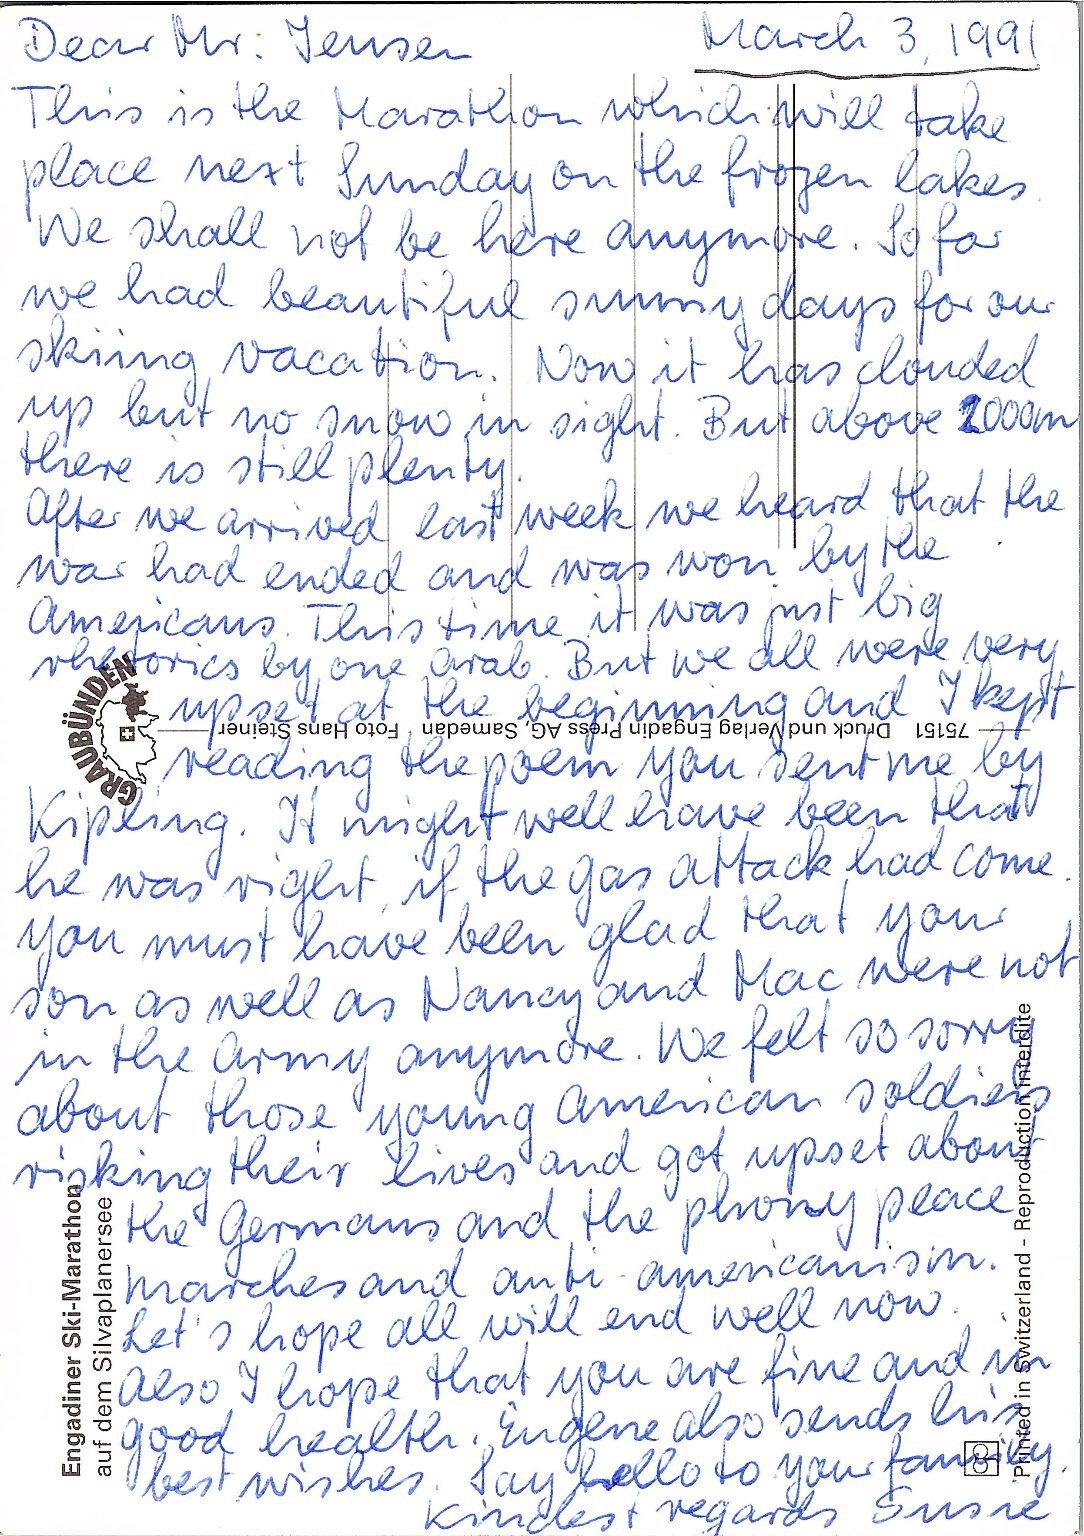 Dear Mr. Jensen
March 3, 1991
This is the Marathon which will take
place next Sunday on the frozen lakes.
We shall not be here anymore. So far
we had beautiful sunny days for our
skiing vacation. Now it has clouded
up but no snow in sight. But above 2000m
there is still plenty.
After we arrived last week we heard that the
war had ended and was won by the
Americans. This time it was just big
rhetorics by one arab. But we all were very
upset at the beginning and I kept
reading the poem you sent me by
Kipling. It might well have been that
he was right, if the gas attack had come.
You must have been glad that your
son as well as Nancy and Mac were not
in the Army anymore. We felt so sorry
about those young American soldiers
risking their lives and got upset about
the Germans and the phony peace
marches and anti-americanism.
Let's hope all will end well now.
Also I hope that you are fine and in
good health. Eugene also sends his
best wishes. Say hello to your family.
Kindest regards Susie
GRAUBÜNDEN
75151 Druck und Verlag Engadin Press AG, Samedan Foto Hans Steiner
Engadiner Ski-Marathon
auf dem Silvaplanersee
Printed in Switzerland - Reproduction interdite